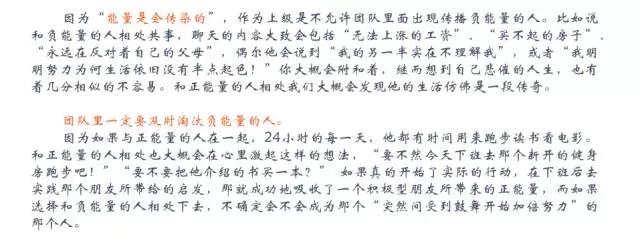 因为“能量是会传染的”，作为上级是不允许团队里面出现传播负能量的人。比如说
和负能量的人相处共事，聊天的内容大致会包括“无法上涨的工资”、“买不起的房子”、
“永远在反对着自己的父母”，偶尔他会说到“我的另一半实在不理解我”，或者“我明
明努力为何生活依旧没有半点起色！”你大概会附和着，继而想到自己悲催的人生，也有
着几分相似的不容易。和正能量的人相处我们大概会发现他的生活仿佛是一段传奇。
团队里一定要及时淘汰负能量的人。
因为如果与正能量的人在一起，24小时的每一天，他都有时间用来跑步读书看电影。
和正能量的人相处也大概会在心里激起这样的想法，“要不然今天下班去那个新开的健身
房跑步吧！”“要不要把他介绍的书买一本？” 如果真的开始了实际的行动，在下班后去
实践那个朋友所带给的启发，那就成功地吸收了一个积极型朋友所带来的正能量，而如果
选择和负能量的人相处下去，不确定会不会成为那个“突然间受到鼓舞开始加倍努力”的
那个人。